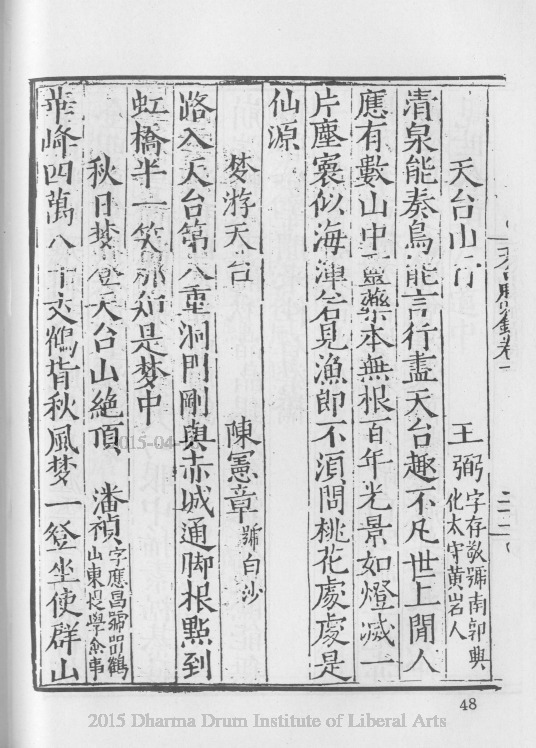 天台勝蹟錄卷一
天台山行　王弼字存敬號南郭興
化太守黃岩人
清泉能奏鳥能言行盡天台趣不凡世上閒人
應有數山中靈藥本無根百年光景如燈滅一
片塵寰似海渾若見漁郎不須問桃花處處是
仙源
梦游天台　陳憲章號白沙
路入天台第八重洞門剛與赤城通脚根點到
虹橋半一笑那知是梦中
秋日梦登天台山絶頂　潘禎字應昌號
鶴
山東提學僉事
華峰四萬八千丈鶴背秋風梦一登坐使群山
48
2015-04
2015 Dharma Drum Institute of Liberal Arts